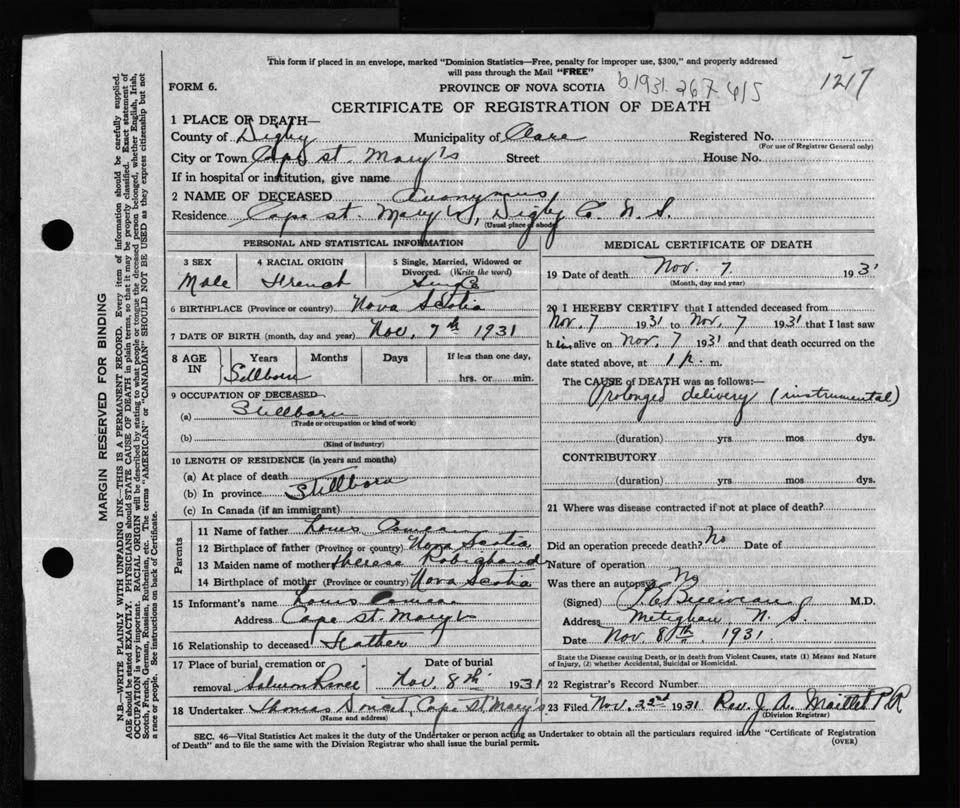 This form if placed in an envelope, marked "Dominion Statistics—Free, penalty for improper use, $300," and properly addressed
will pass through the Mail "FREE"
FORM 6.
PROVINCE OF NOVA SCOTIA b.1931.267.415
1217
CERTIFICATE OF REGISTRATION OF DEATH
1 PLACE OF DEATH—
County of Digby Municipality of Clare Registered No.
(For use of Registrar General only)
City or Town Cape St. Mary's Street House No.
If in hospital or institution, give name
2 NAME OF DECEASED Anonymus
Residence Cape St. Mary's, Digby Co. N. S.
(Usual place of abode)
PERSONAL AND STATISTICAL INFORMATION
3 SEX 4 RACIAL ORIGIN 5 Single, Married, Widowed or
Divorced. (Write the word)
Male French Single
6 BIRTHPLACE (Province or country) Nova Scotia
7 DATE OF BIRTH (month, day and year) Nov. 7th 1931
8 AGE IN Years Months Days If less than one day,
Stillborn hrs. or min.
9 OCCUPATION OF DECEASED—
(a) Stillborn
(Trade or occupation or kind of work)
(b)
(Kind of industry)
10 LENGTH OF RESIDENCE (in years and months)
(a) At place of death
(b) In province Stillborn
(c) In Canada (if an immigrant)
Parents
11 Name of father Louis Comeau
12 Birthplace of father (Province or country) Nova Scotia
13 Maiden name of mother Therese Robichaud
14 Birthplace of mother (Province or country) Nova Scotia
15 Informant's name Louis Comeau
Address Cape St. Mary's
16 Relationship to deceased Father
17 Place of burial, cremation or Date of burial
removal Salmon River Nov. 8th 1931
18 Undertaker Thomas Doucet, Cape St. Mary's
(Name and address)
MEDICAL CERTIFICATE OF DEATH
19 Date of death Nov. 7. 1931
(Month, day and year)
20 I HEREBY CERTIFY that I attended deceased from
Nov. 7 1931 to Nov. 7 1931 that I last saw
him alive on Nov. 7 1931 and that death occurred on the
date stated above, at 1 p. m.
The CAUSE of DEATH was as follows:—
Prolonged delivery (instrumental)
(duration) yrs mos dys.
CONTRIBUTORY
(duration) yrs. mos. dys.
21 Where was disease contracted if not at place of death?
Did an operation precede death? No Date of
Nature of operation
Was there an autopsy? No
(Signed) M.D.
Address Meteghan, N. S.
Date Nov 8th. 1931.
State the Disease causing Death, or in death from Violent Causes, state (1) Means and Nature
of Injury, (2) whether Accidental, Suicidal or Homicidal.
22 Registrar's Record Number
23 Filed Nov. 22nd 1931 Rev. J. A. Maillet P.R
(Division Registrar)
SEC. 46—Vital Statistics Act makes it the duty of the Undertaker or person acting as Undertaker to obtain all the particulars required in the "Certificate of Registration
of Death" and to file the same with the Division Registrar who shall issue the burial permit.
(OVER)
MARGIN RESERVED FOR BINDING
N.B.—WRITE PLAINLY WITH UNFADING INK—THIS IS A PERMANENT RECORD. Every item of information should be carefully supplied.
AGE should be stated EXACTLY. PHYSICIANS should STATE CAUSE OF DEATH in plain terms, so that it may be properly classified. Exact statement of
OCCUPATION is very important. RACIAL ORIGIN will be described by stating to what people or tongue the deceased person belonged, whether English, Irish,
Scotch, French, German, Russian, Ruthenian, etc. The terms "AMERICAN" or "CANADIAN" SHOULD NOT BE USED as they express citizenship but not
a race or people. See instructions on back of Certificate.